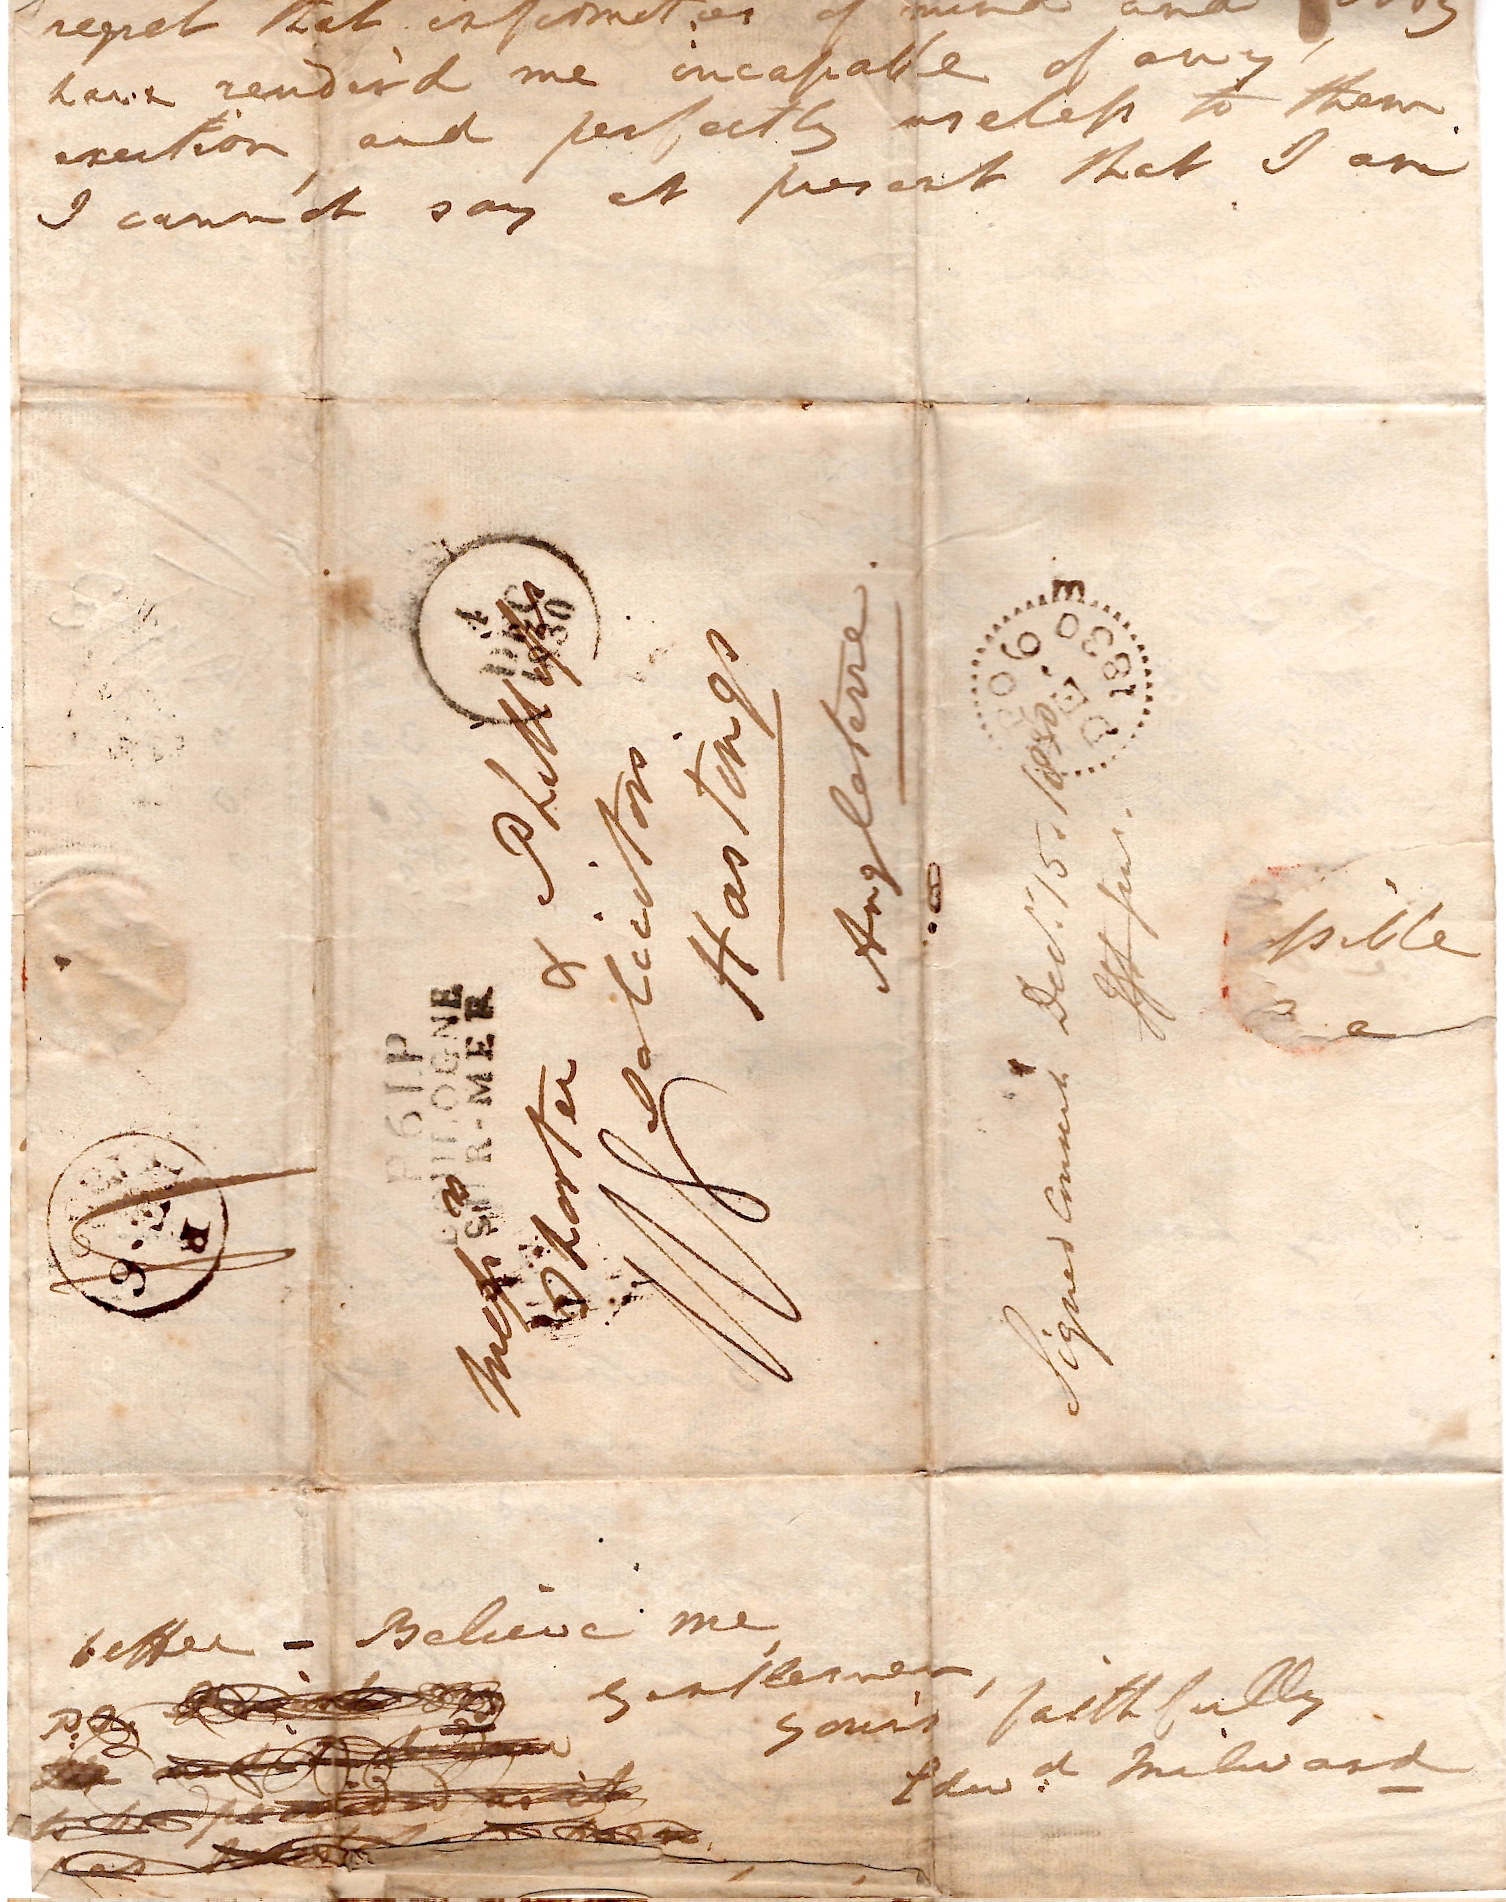 regret that infirmities of mind and body
have render'd me incapable of any
exertion, and perfectly useless to them.
I cannot say at present that I am
4
DEC
1830
P61P
BOULOGNE
SUR-MER
Mess.rs
Shorter & Phillips
Solicitors
Hastings
Angleterre.
DE.6
1830
Signed Consent Decr. 15. 1830
sible
a
better – Believe me,
Gentlemen,
yours faithfully
Edwd. Milward
P.S.